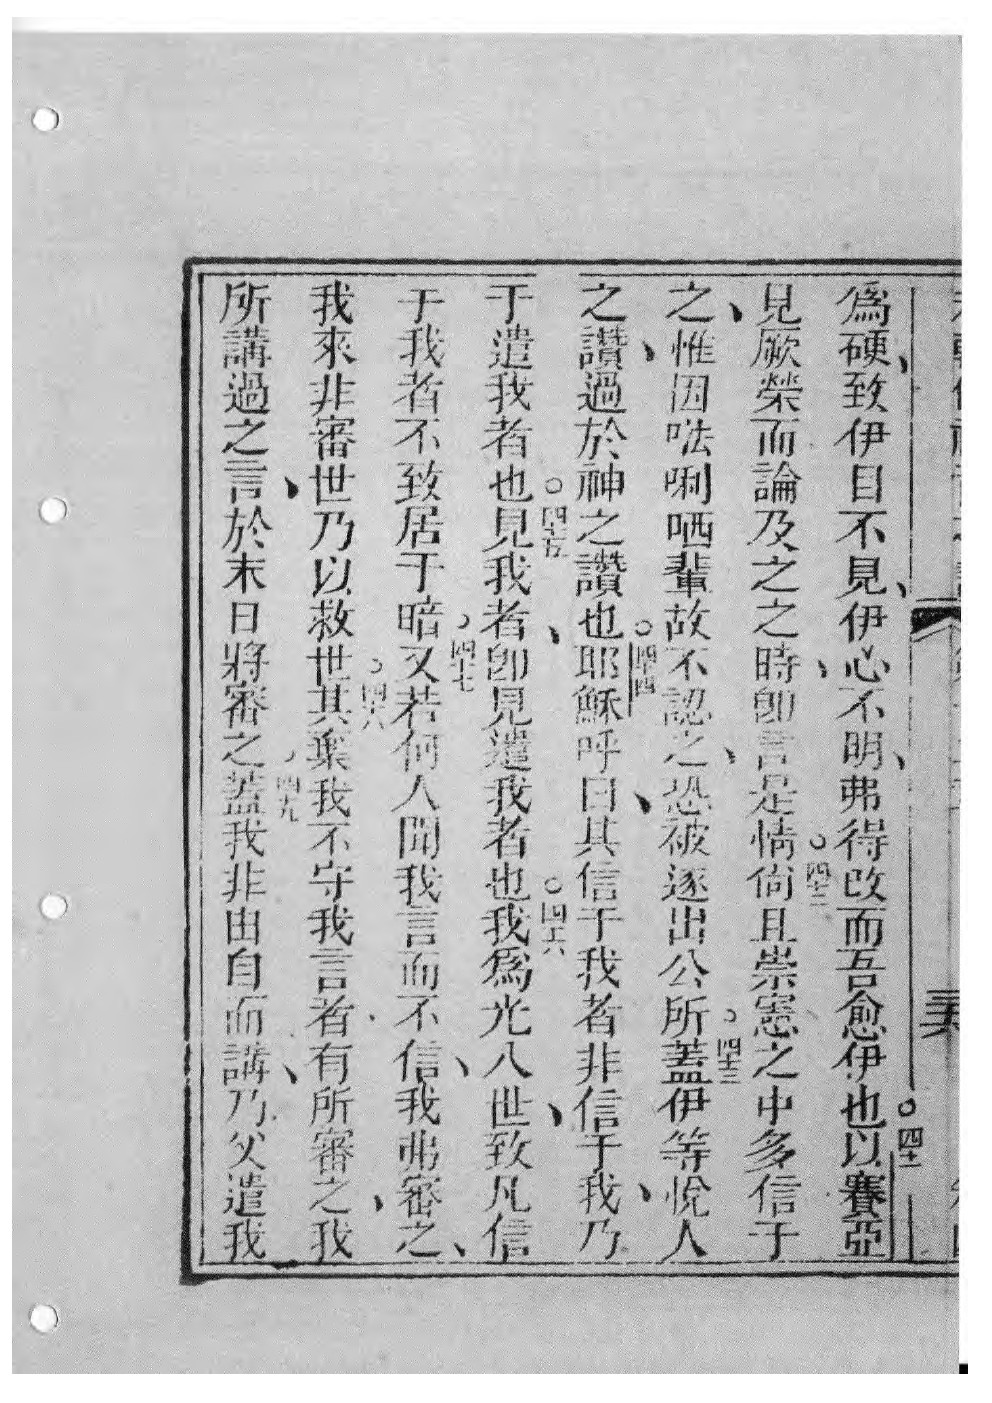 為硬致伊目不見伊心不明弗得改而吾愈伊也以賽亞
四十一
見厥榮而論及之之時卽言是情尙且崇憲之中多信于
四十二
之惟因𠵽唎哂輩故不認之恐被逐出公所蓋伊等悅人
四十三
之讚過於神之讚也耶穌呼曰其信于我者非信于我乃
四十四
于遣我者也見我者卽見遣我者也我為光入世致凡信
四十五
四十六
于我者不致居于暗又若何人聞我言而不信我弗審之
四十七
我來非審世乃以救世其棄我不守我言者有所審之我
四十八
所講過之言於末日將審之蓋我非由自而講乃父遣我
四十九